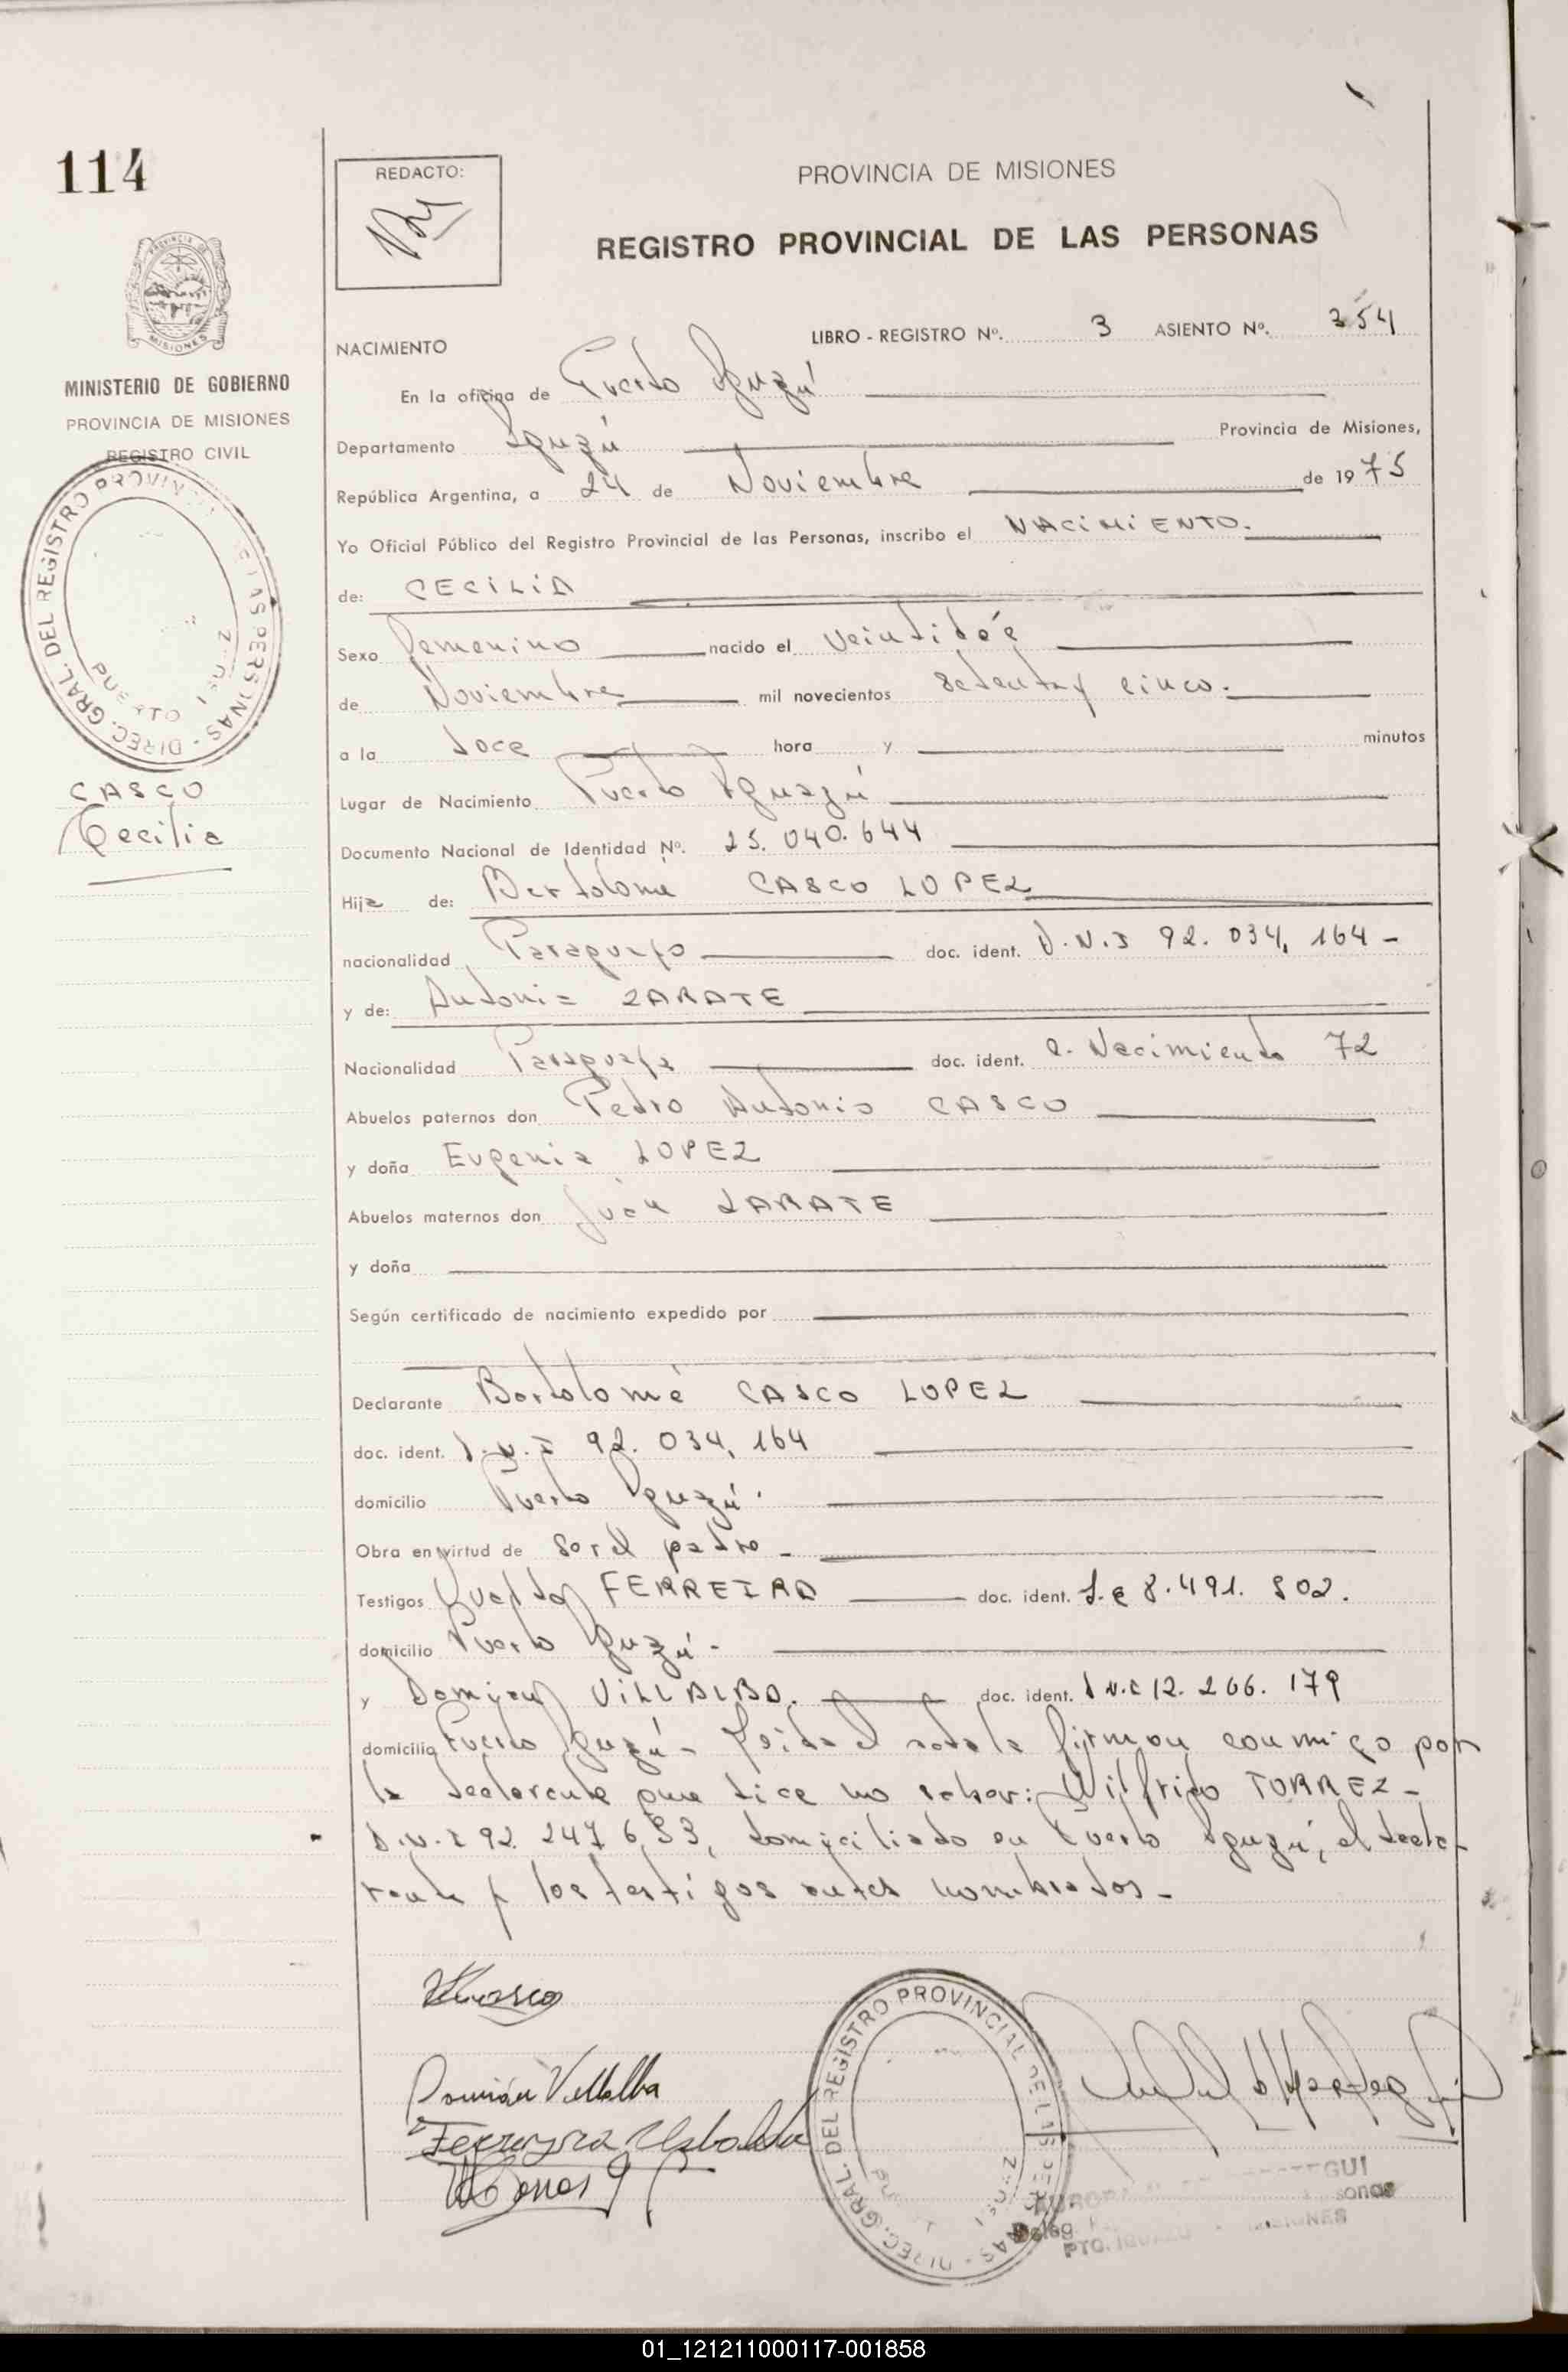 114
REDACTO:
PROVINCIA DE MISIONES
REGISTRO PROVINCIAL DE LAS PERSONAS
MINISTERIO DE GOBIERNO
PROVINCIA DE MISIONES
REGISTRO CIVIL
DIREC. GRAL. DEL REGISTRO PROVINCIAL DE LAS PERSONAS
PUERTO IGUAZU
CASCO
Cecilia
NACIMIENTO
LIBRO - REGISTRO Nº. 3 ASIENTO Nº. 354
En la oficina de Puerto Iguazú
Departamento Iguazú Provincia de Misiones,
República Argentina, a 24 de Noviembre de 1975
Yo Oficial Público del Registro Provincial de las Personas, inscribo el NACIMIENTO.
de: CECILIA
Sexo Femenino nacido el veintidós
de Noviembre mil novecientos setenta y cinco.
a la doce hora y minutos
Lugar de Nacimiento Puerto Iguazú
Documento Nacional de Identidad Nº. 25.040.644
Hija de: Bartolomé CASCO LOPEZ
nacionalidad Paraguayo doc. ident. D.N.I 92.034,164 -
y de: Antonia ZARATE
Nacionalidad Paraguaya doc. ident. C. Nacimiento 72
Abuelos paternos don Pedro Antonio CASCO
y doña Eugenia LOPEZ
Abuelos maternos don Juan ZARATE
y doña
Según certificado de nacimiento expedido por
Declarante Bartolomé CASCO LOPEZ
doc. ident. D.N.I 92.034,164
domicilio Puerto Iguazú.
Obra en virtud de ser el padre -
Testigos FERREIRA doc. ident. 8.491.802.
domicilio Puerto Iguazú -
y Damián VILLALBA. doc. ident. 12.266.179
domicilio Puerto Iguazú - Leída el acta la firman conmigo por
la declarante que dice no saber: Wilfrido TORREZ -
D.N.I 92.247.653, domiciliado en Puerto Iguazú, el decla-
rante y los testigos antes nombrados -
Damián Villalba
DIREC. GRAL. DEL REGISTRO PROVINCIAL DE LAS PERSONAS
01_121211000117-001858